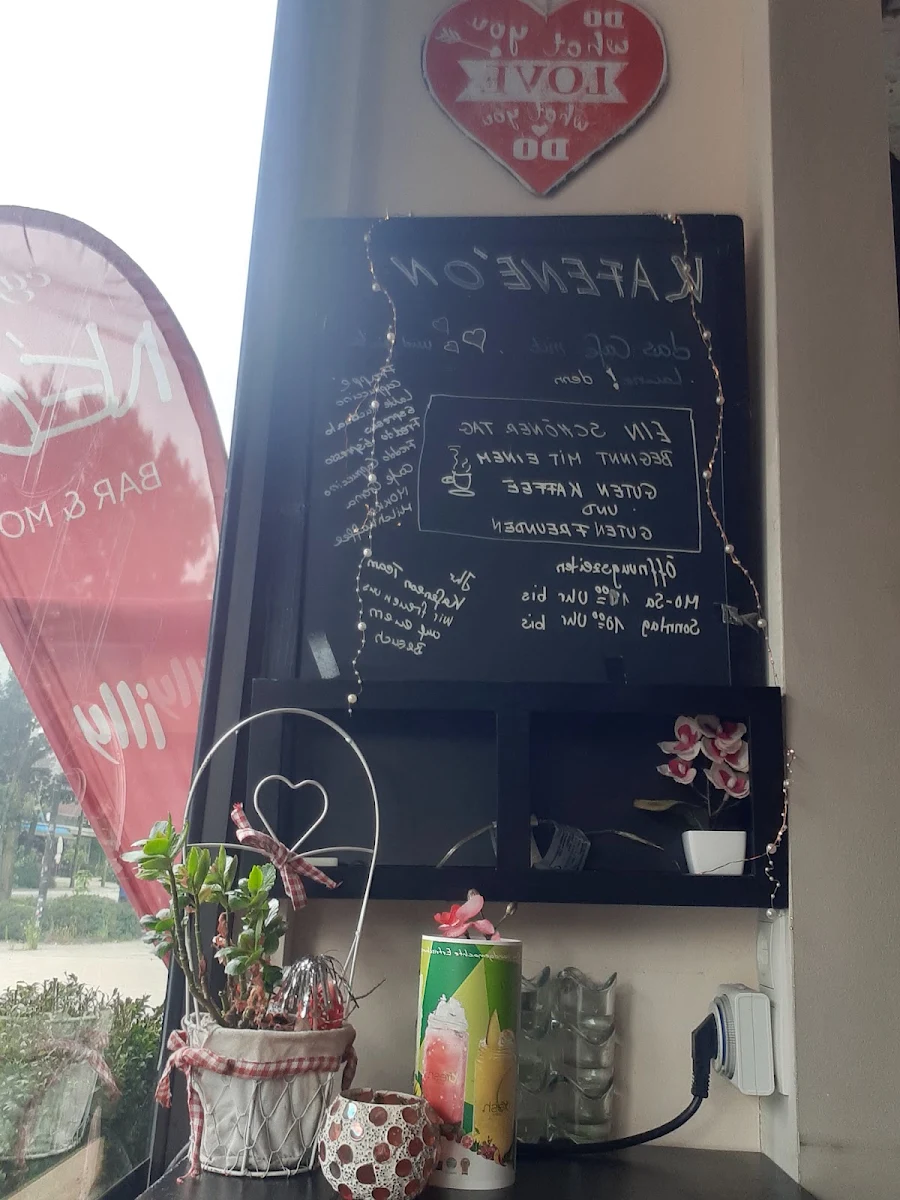 DO
what you
LOVE
what you
DO
KAFENE'ON
das Café mit
und
Laune! dem
EIN SCHÖNER TAG
BEGINNT MIT EINEM
GUTEN KAFFEE
UND
GUTEN FREUNDEN
Frappe
Cappuccino
Espresso
Freddo Espresso
Freddo Cappuccino
Cafe Crema
Mokka
Milchkaffee
Öffnungszeiten
Mo-Sa Uhr bis
Sonntag 10:00 Uhr bis
Ihr
Kafeneon Team
wir freuen uns
auf euren
Besuch
BAR & MO
illy